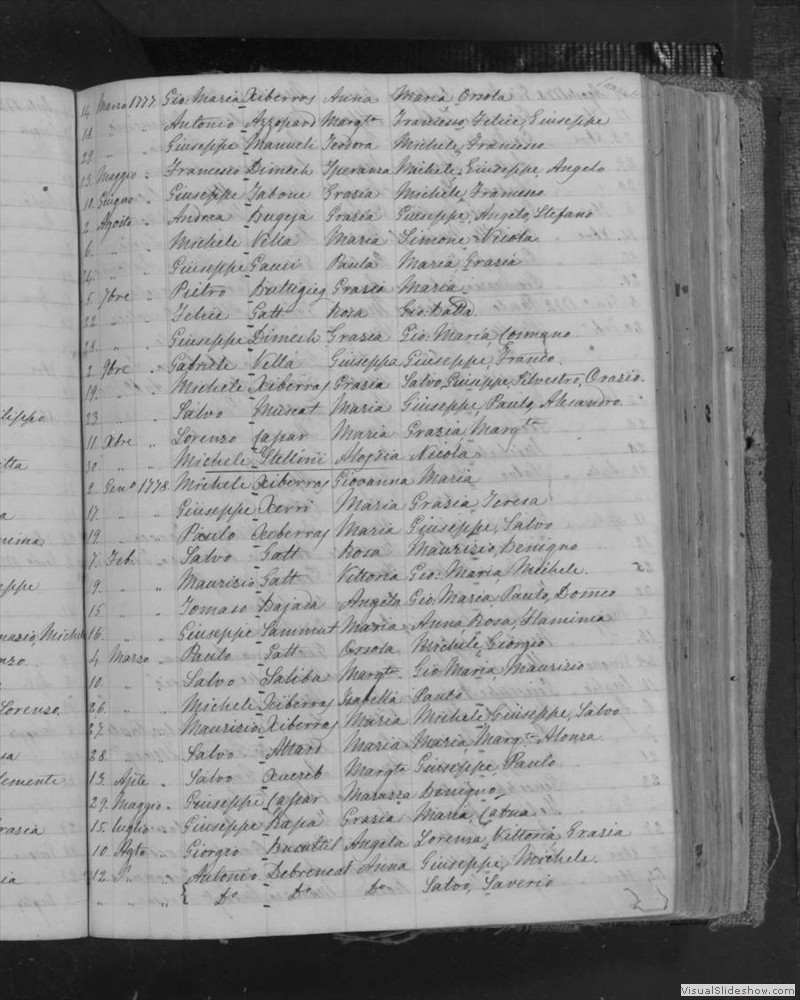 14 Marzo 1777. Gio. Maria Xiberras Anna Maria Orsola
18 „ „ Antonio Azzopard Margta Francesco, Felice, Giuseppe
29 „ „ Giuseppe Manueli Teodora Michele, Francesco
13 Maggio „ Francesco Dimech Speranza Michele, Giuseppe, Angelo
10 Giugno „ Giuseppe Tabone Grazia Michele, Francesco
2 Agosto „ Andrea Bugeja Grazia Giuseppe, Angelo, Stefano
6 „ „ Michele Vella Maria Simone Nicola
24 „ „ Giuseppe Gauci Paula Maria, Grazia
5 7bre „ Pietro Buttigieg Grazia Maria
22 „ „ Felice Gatt Rosa Gio. Batta.
28 „ „ Giuseppe Dimech Grazia Gio. Maria,
2 9bre „ Gabriele Vella Giuseppa Giuseppe, Franco.
19 „ „ Michele Xiberras Grazia Salvo, Giuseppe, Silvestro, Orazio
23 „ „ Salvo Muscat Maria Giuseppe, Paulo, Alesandro.
11 Xbre „ Lorenzo Caspar Maria Grazia, Margta
30 „ „ Michele Stellini Nicola
2 Geno 1778. Michele Xiberras Giovanna Maria
17 „ „ Giuseppe Xerri Maria Grazia, Teresa
19 „ „ Paulo Xeberras Maria Giuseppe, Salvo
7 Feb. „ Salvo Gatt Rosa Maurizio, Benigno
9 „ „ Maurizio Gatt Vittoria Gio. Maria, Michele.
15 „ „ Tomaso Bajada Angela Gio. Maria, Paulo, Domco
16 „ „ Giuseppe Sammut Maria Anna Rosa, Flaminia
4 Marzo „ Paulo Gatt Orsola Michele, Giorgio
10 „ „ Salvo Saliba Margta Gio Maria, Maurizio
26 „ „ Michele Xiberras Isabella Paulo
27 „ „ Maurizio Xiberras Maria Michele, Giuseppe, Salvo
28 „ „ Salvo Attard Maria Maria Margta Alonza
13 Aple „ Salvo Xuereb Margta Giuseppe, Paulo
29 Maggio „ Giuseppe Caspar Benigno
15 Luglio „ Giuseppe Rapa Grazia Maria,
10 Agto „ Giorgio Angela Lorenza, Vittoria, Grazia
12 „ „ Antonio Debrencat Anna Giuseppe, Michele.
„ „ „ Do Do Do Salvo, Saverio
ilippo
Michele
nzo.
Lorenzo.
lemente
Grazia
VisualSlideshow.com